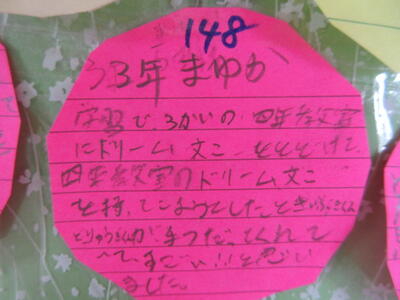 148
う3年 まゆか
学習で、3かいの 四年教室
にドリーム文こ をとどけて、
四年教室のドリーム文こ
を持っていこうとしたとき
とりゅうさんが手つだってくれて
すごい!!と思い
ました。